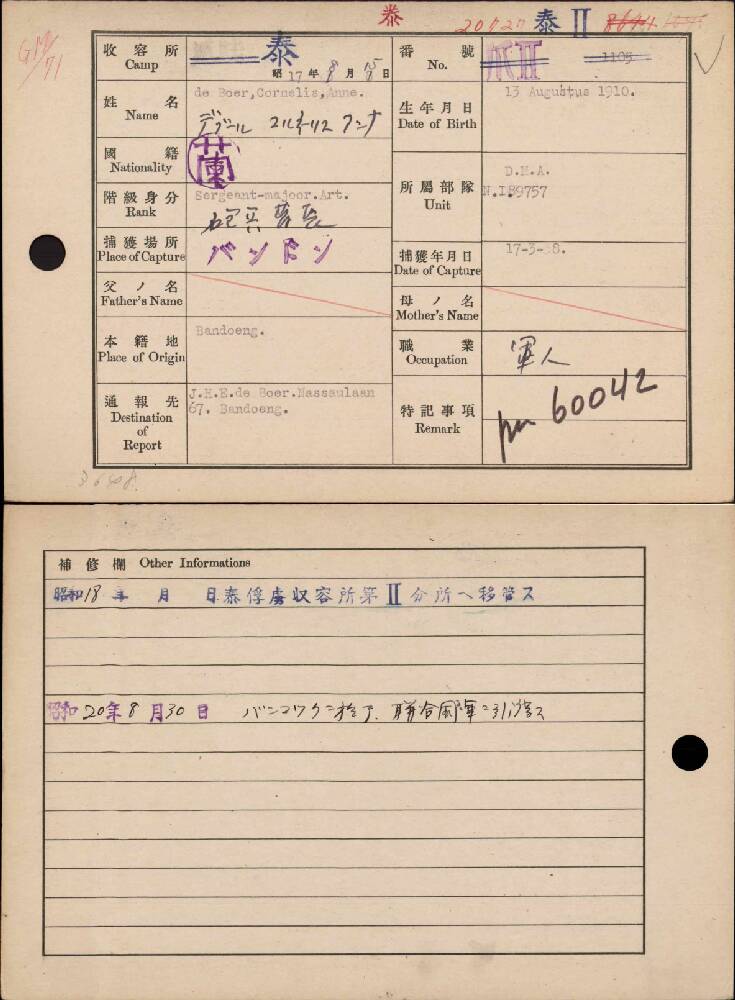 泰
20727 泰 II
GM/71
收容所
Camp
泰
昭17年8月15日
番號
No.
1105
姓名
Name
de Boer,Cornelis,Anne.
デブール コルネーリス アンナ
生年月日
Date of Birth
13 Augustus 1910.
國籍
Nationality
蘭
階級身分
Rank
Sergeant-majoor.Art.
砲兵曹長
所屬部隊
Unit
D.M.A.
N.I.89757
捕獲場所
Place of Capture
バンドン
捕獲年月日
Date of Capture
父ノ名
Father's Name
母ノ名
Mother's Name
本籍地
Place of Origin
Bandoeng.
職業
Occupation
軍人
通報先
Destination
of
Report
J.H.E.de Boer.Nassaulaan
67. Bandoeng.
特記事項
Remark
60042
補修欄 Other Informations
昭和18年 月 日泰俘虜収容所第II分所へ移管ス
昭和20年8月30日 バンコックニ於テ、聯合国軍ニ引渡ス